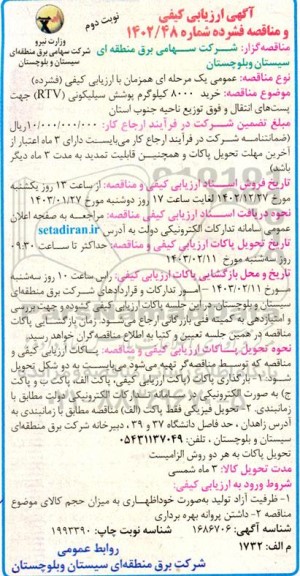 نوبت دوم
آگهی ارزیابی کیفی
و مناقصه فشرده شماره ۱۴۰۲/۴۸
وزارت نیرو
شرکت سهامی برق منطقه‌ای
سیستان و بلوچستان
مناقصه‌گزار: شرکت سهامی برق منطقه ای
سیستان وبلوچستان
نوع مناقصه: عمومی یک مرحله ای همزمان با ارزیابی کیفی (فشرده)
موضوع مناقصه: خرید ۸۰۰۰ کیلوگرم پوشش سیلیکونی (RTV) جهت
پست‌های انتقال و فوق توزیع ناحیه جنوب استان
مبلغ تضمین شرکت در فرآیند ارجاع کار: ۱۰/۰۰۰/۰۰۰/۰۰۰ریال
(ضمانتنامه شرکت در فرآیند ارجاع کار می‌بایست دارای ۳ ماه اعتبار از
آخرین مهلت تحویل پاکات و همچنین قابلیت تمدید به مدت ۳ ماه دیگر
باشد)
تاریخ فروش اسناد ارزیابی کیفی و مناقصه: از ساعت ۱۳ روز یکشنبه
مورخ ۱۴۰۲/۱۲/۲۷ لغایت ساعت ۱۷ روز دوشنبه مورخ ۱۴۰۳/۰۱/۲۷
نحوه دریافت اسناد ارزیابی کیفی و مناقصه: مراجعه به صفحه اعلان
عمومی سامانه تدارکات الکترونیکی دولت به آدرس setadiran.ir
تاریخ تحویل پاکات ارزیابی کیفی و مناقصه: حداکثر تا ساعت ۰۹:۳۰
روز سه‌شنبه مورخ ۱۴۰۳/۰۲/۱۱
تاریخ و محل بازگشایی پاکات ارزیابی کیفی: راس ساعت ۱۰ روز سه‌شنبه
مورخ ۱۴۰۳/۰۲/۱۱ – امور تدارکات و قراردادهای شرکت برق منطقه‌ای
سیستان و بلوچستان در این جلسه پاکات ارزیابی کیفی گشوده و جهت بررسی
و امتیازدهی به کمیته فنی بازرگانی ارجاع می‌شود. زمان بازگشایی پاکات
مناقصه در همین جلسه تعیین و کتبا به اطلاع مناقصه‌گران خواهد رسید.
نحوه تحویل پاکات ارزیابی کیفی و مناقصه: پاکات ارزیابی کیفی و
مناقصه که توسط مناقصه‌گر تهیه می‌شود می‌بایست به دو شکل تحویل
شود: ۱- بارگذاری پاکات (پاکت ارزیابی کیفی، پاکت الف، پاکت ب و پاکت
ج) به صورت الکترونیکی در سامانه تدارکات الکترونیکی دولت مطابق با
زمانبندی. ۲- تحویل فیزیکی فقط پاکت (الف) مناقصه مطابق با زمانبندی به
آدرس زاهدان ، حد فاصل دانشگاه ۳۷ و ۳۹، دبیرخانه شرکت برق منطقه‌ای
سیستان و بلوچستان ، تلفن: ۰۵۴۳۱۱۳۷۰۴۹
تحویل پاکات به هر دو روش الزامیست
مدت تحویل کالا: ۳ ماه شمسی
شروط ورود به ارزیابی کیفی:
۱- ظرفیت آزاد تولید به‌صورت خوداظهاری به میزان حجم کالای موضوع
مناقصه ۲- داشتن پروانه بهره برداری
شناسه آگهی: ۱۶۸۶۷۰۶ شناسه نوبت چاپ: ۱۹۹۳۳۹۰
م الف: ۱۷۳۲
روابط عمومی
شرکت برق منطقه‌ای سیستان وبلوچستان